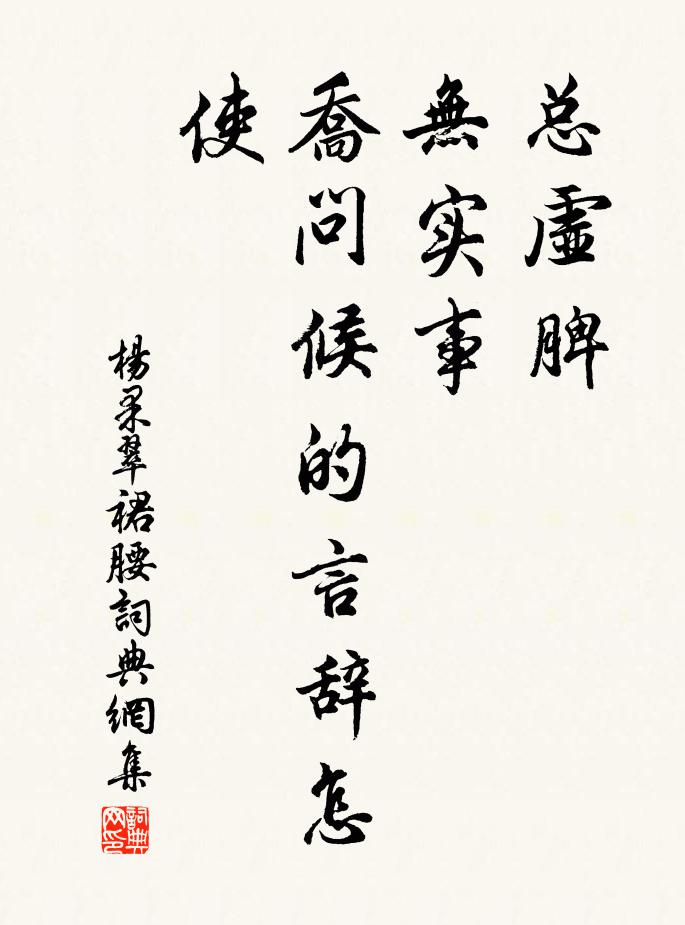 总虚脾
無实事
喬问候的言辞怎
使
楊杲翠裙腰詞典網集
詞典網印